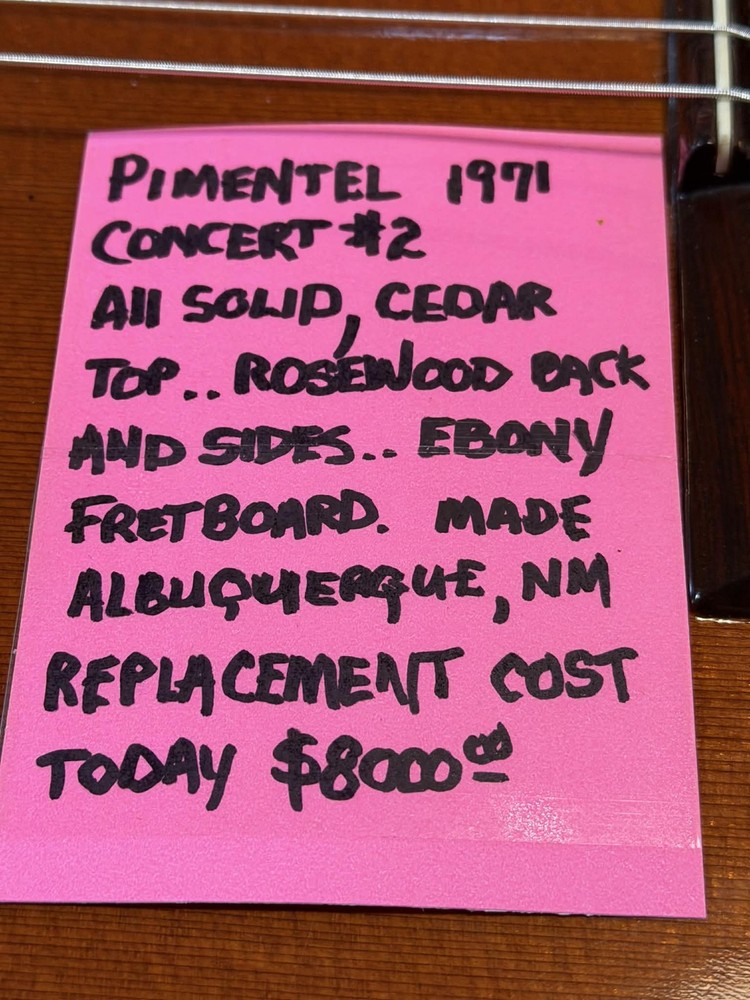 PIMENTEL 1971
CONCERT #2
All SOLID, CEDAR
TOP.. ROSEWOOD BACK
AND SIDES.. EBONY
FRETBOARD. MADE
ALBUQUIERQUE, NM
REPLACEMENT COST
TODAY $8000 00